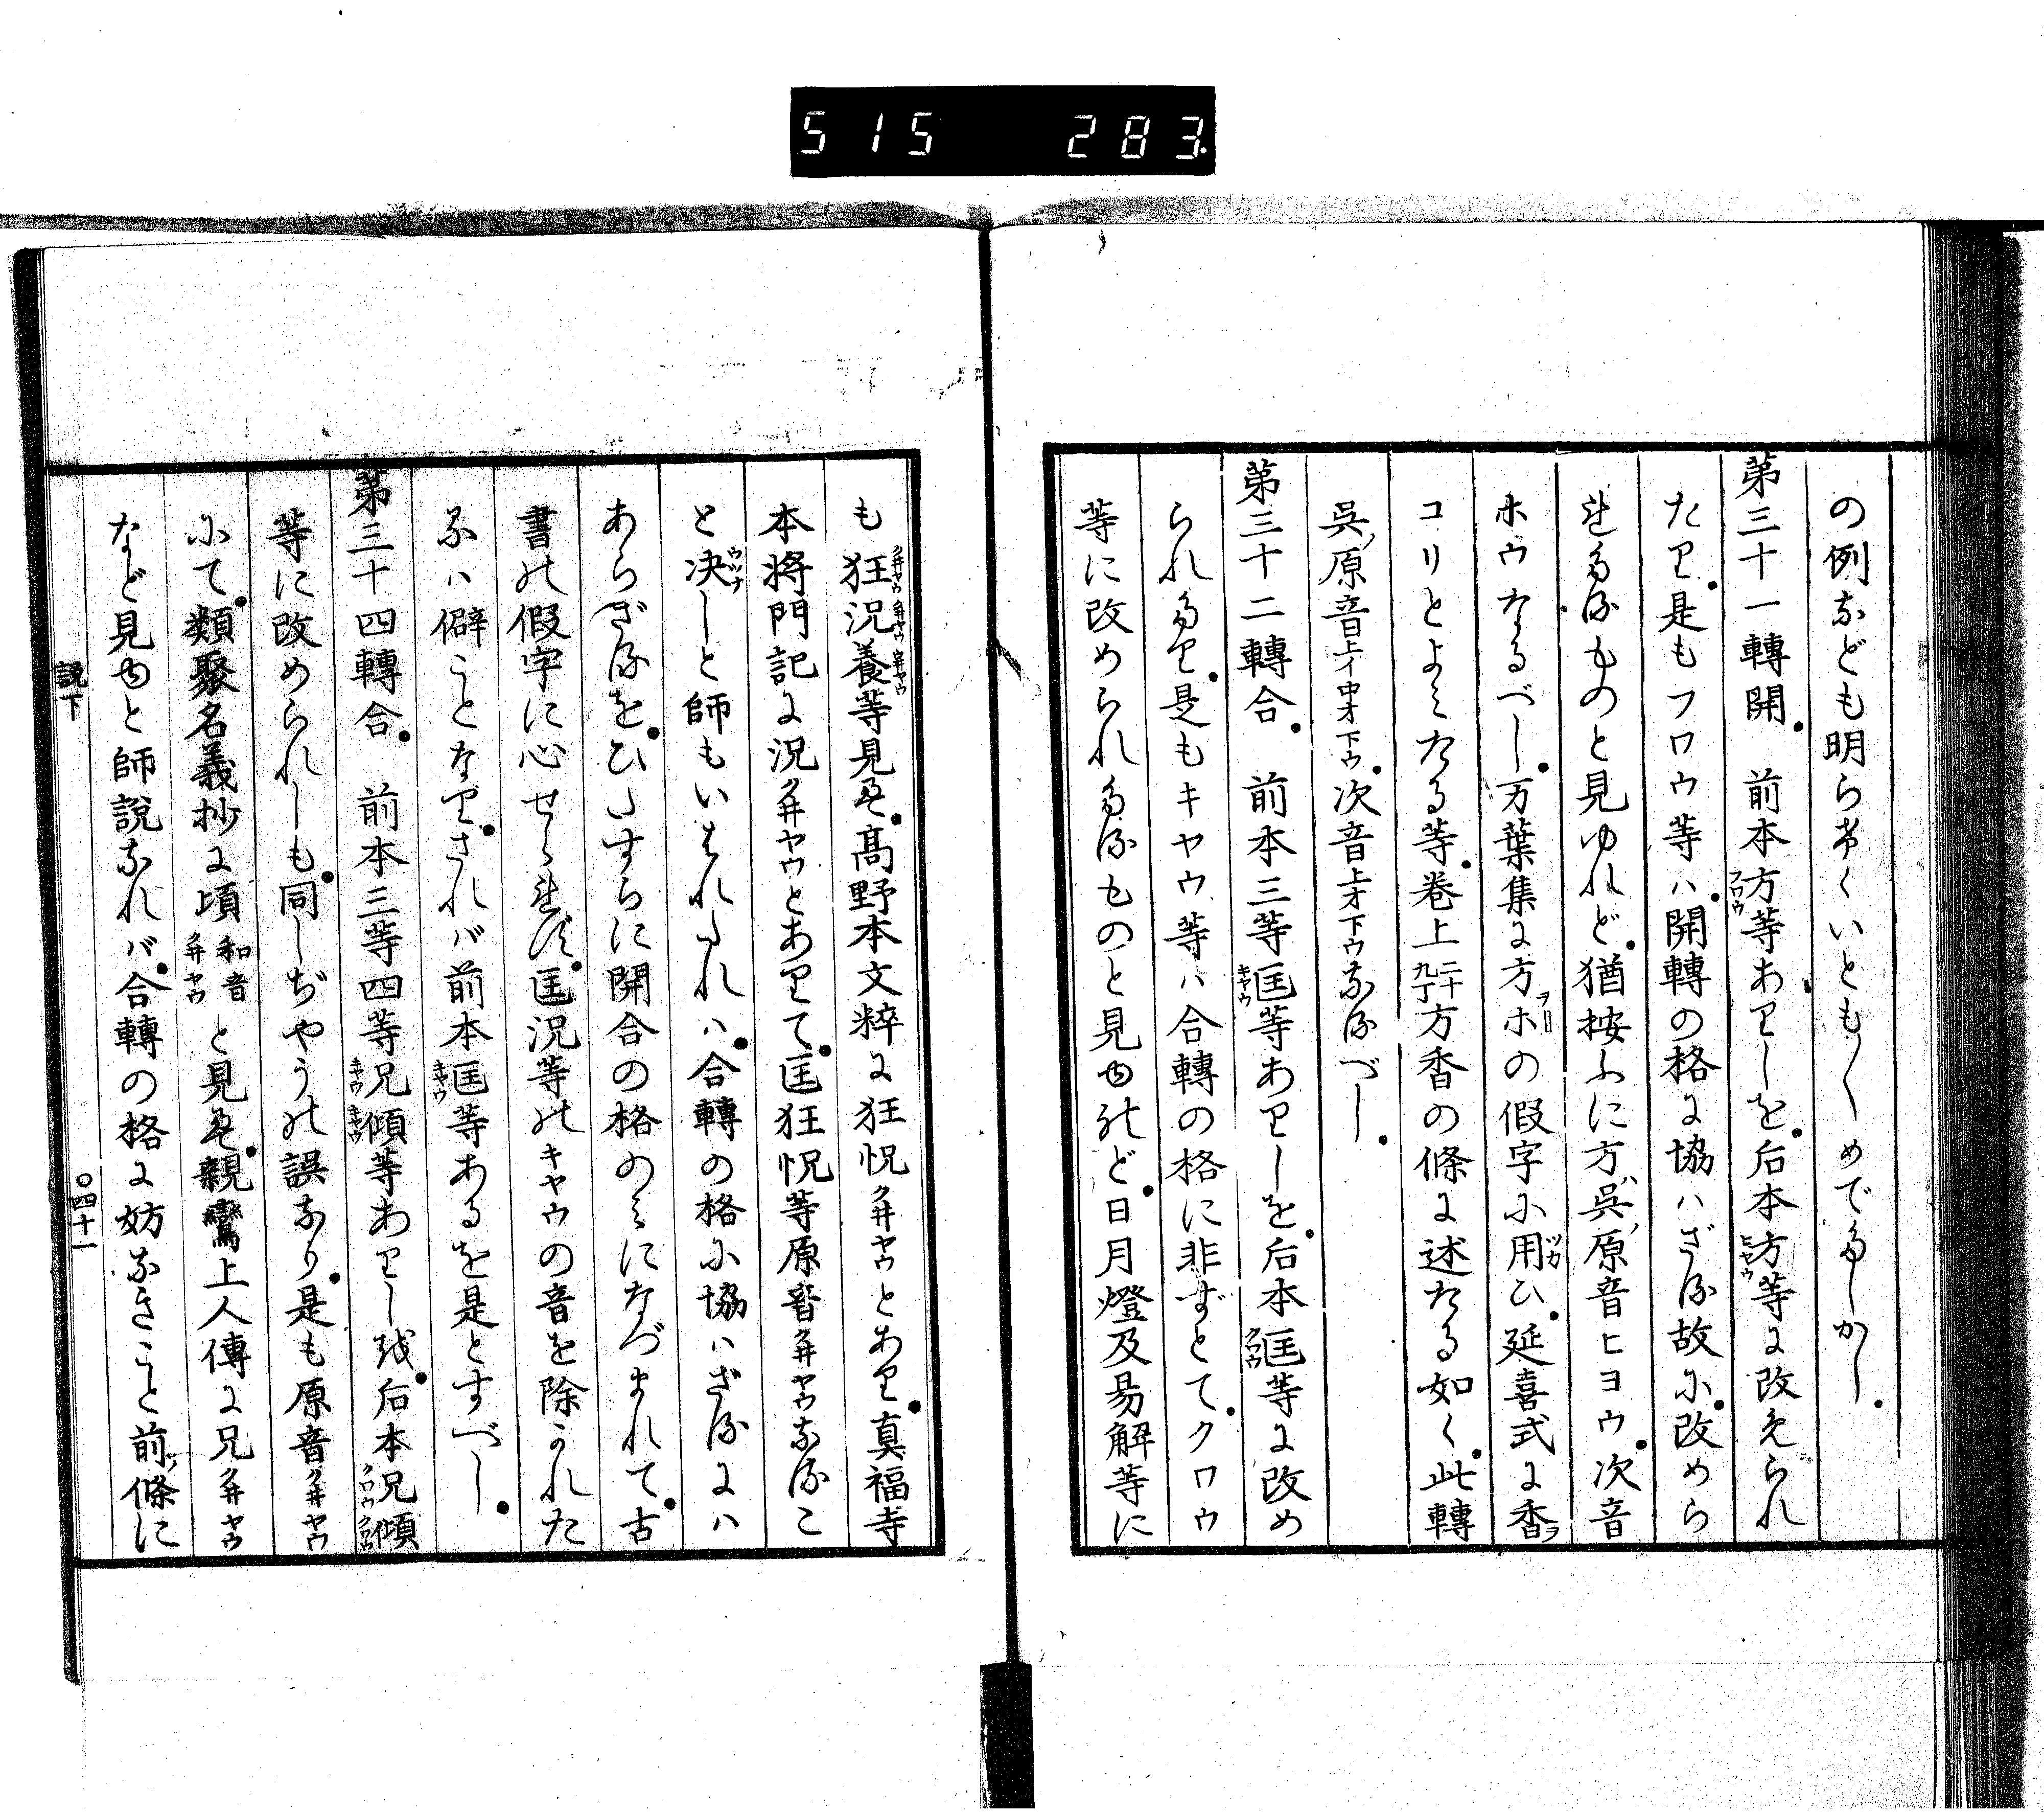 515 283
の例なども明らけくいとも〱めでたしかし。
第三十一轉開。前本方フワウ等ありしを。后本方ヒヤウ等に改められ
たり。是もフワウ等ハ。開轉の格に協ハざる故に。改めら
れたるものと見ゆれど。猶按ふに方ハ呉ノ原音ヒヨウ。次音
ホウなるべし。万葉集に方ヲホの假字に用ツカひ。延喜式に香ヲ
コリとよミたる等。卷上二十九丁方香の條に述たる如く。此轉
呉ノ原音上イ中オ下ウ。次音上オ下ウなるべし。
第三十二轉合。前本三等匡キヤウ等ありしを。后本匡クワウ等に改め
られたり。是もキヤウ等ハ合轉の格に非ずとて。クワウ
等に改められたるものと見ゆれど。日月燈及易解等に
も狂クヰヤウ況クヰヤウ養ウヰヤウ等見え。髙野本文粹に狂怳クヰヤウとあり。真福寺
本將門記に況クヰヤウとありて。匡狂怳等原音クヰヤウなるこ
と決ウツナしと師もいはれたれハ。合轉の格に協ハざるにハ
あらざるを。ひたすらに開合の格のミになづまれて。古
書の假字に心せられず。匡況等のキヤウの音を除かれた
るハ僻ことなり。されバ前本匡キヤウ等あるを是とすべし。
第三十四轉合。前本三等四等兄キヤウ傾キヤウ等ありしを。后本兄クワウ傾クワウ
等に改められしも。同じぢやうの誤なり。是も原音クヰヤウ
にて。類聚名義抄に頃和音クヰヤウと見え。親鸞上人傳に兄クヰヤウ
など見ゆと師說なれバ。合轉の格に妨なきこと前ノ條に
説下
○四十一